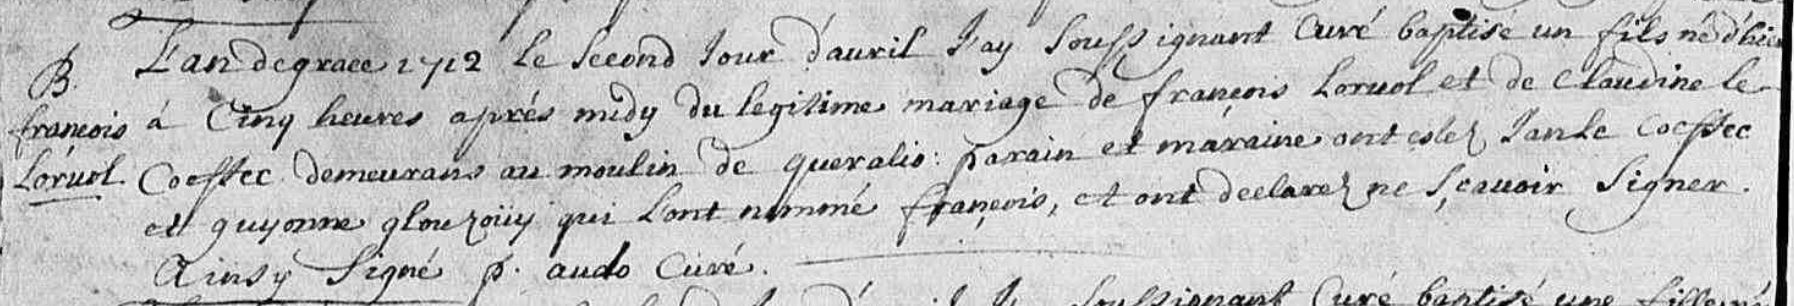 B.
françois
Loruol
L'an de grace 1712 le second jour d'auril J'ay soussignant Curé baptisé un fils né d'hier
á Cinq heures aprés midy du legitime mariage de françois Loruol et de Claudine le
Coeffec demeurans au moulin de queralio: parain et maraine ont estez Jan le Coeffec
et guyonne glouzoüy qui l'ont nommé françois, et ont declarez ne sçauoir signer.
Ainsy signé p. audo Curé.
soussignant Curé baptisé une fille né